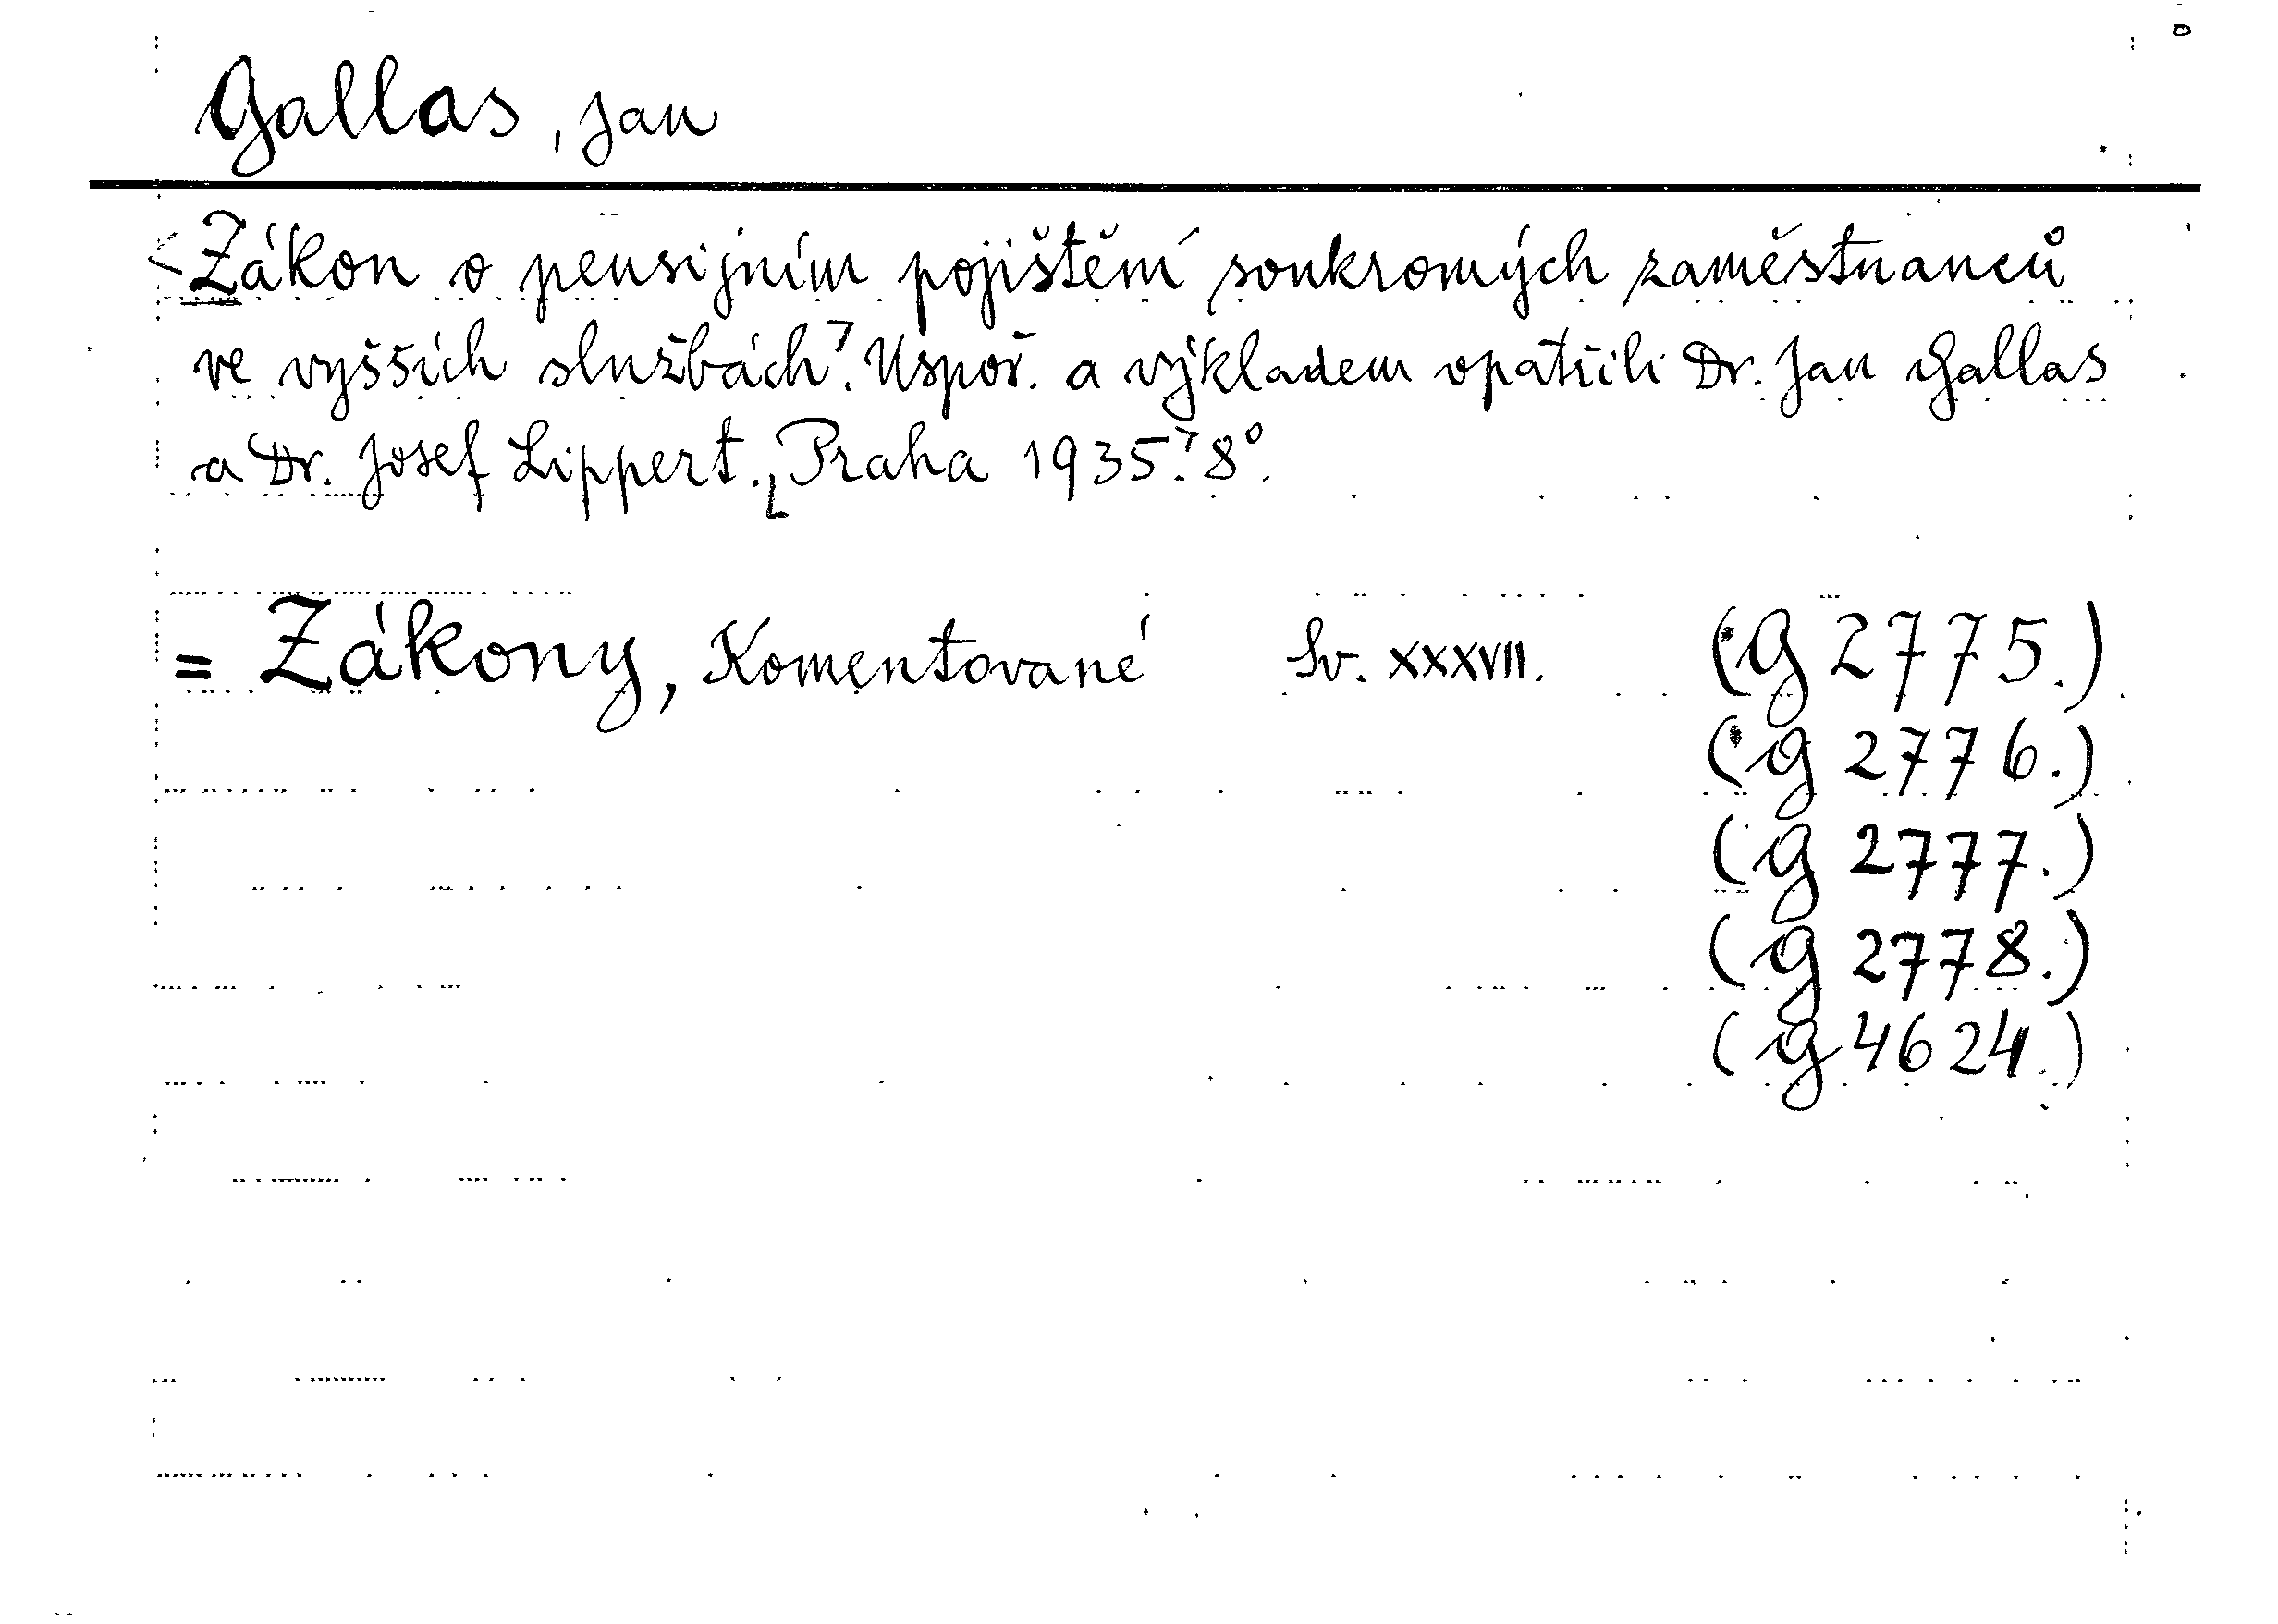 Gallas, Jan
Zákon o pensijním pojištění soukromých zaměstnanců
ve vyšších službách. Uspoř. a výkladem opatřili Dr. Jan Gallas
a Dr. Josef Lippert. Praha 1935. 8°.
= Zákony, Komentované Sv. XXXVII. (g 2775.)
(g 2776.)
(g 2777.)
(g 2778.)
(g 4624.)